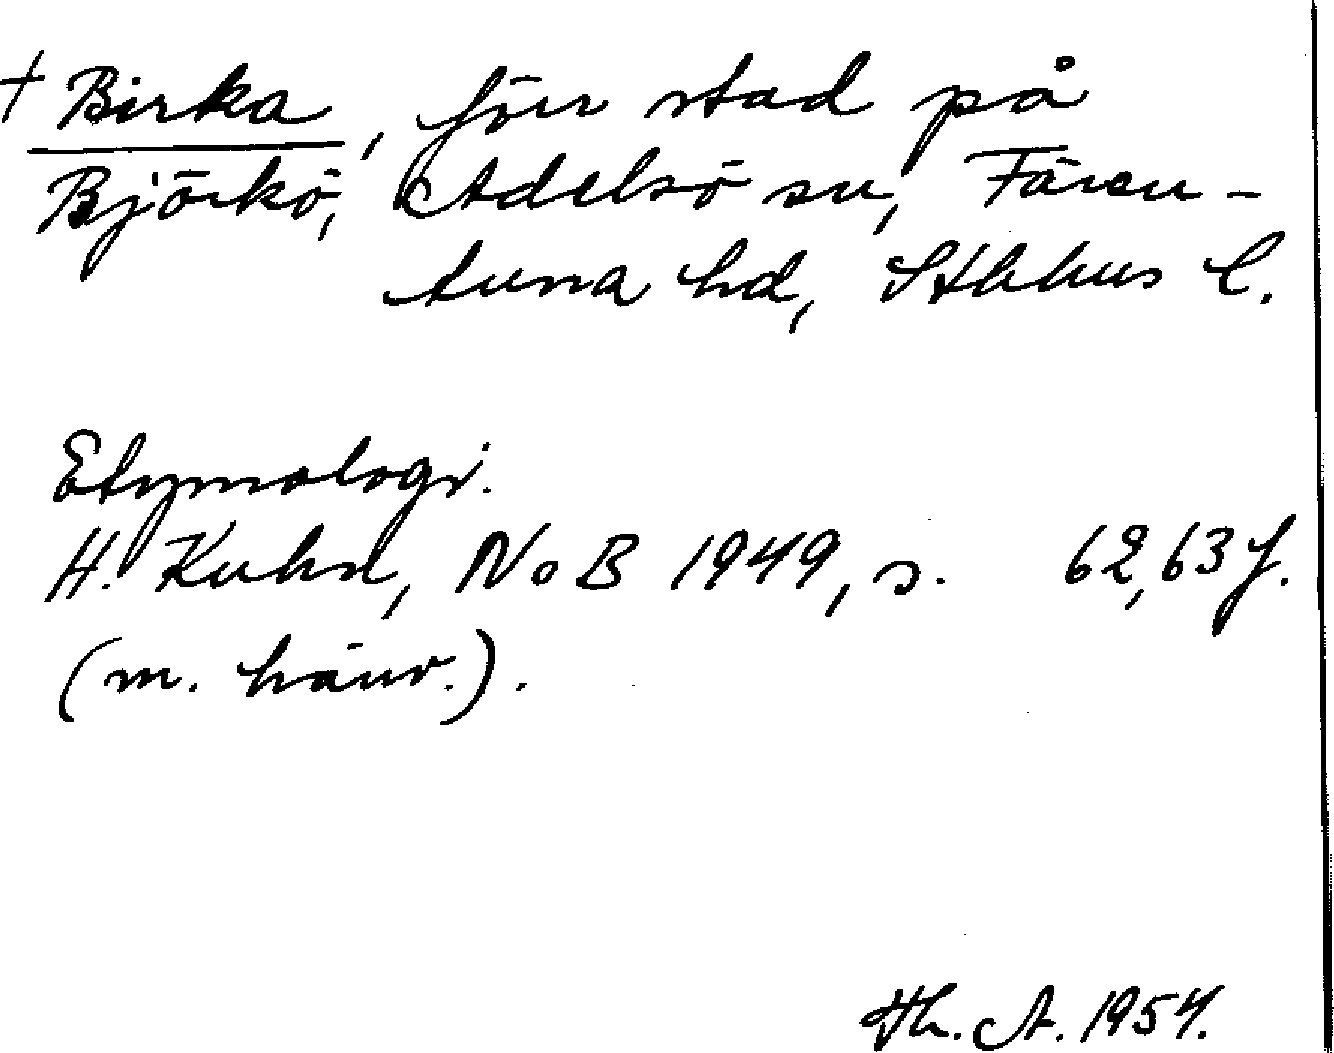 † Birka, förr stad på
Björkö, Adelsö sn, Fären-
tuna hd, Sthlms l.
Etymologi.
H. Kuhn, NoB 1949, s. 62, 63 f.
(m. hänv.).
Th. A. 1954.